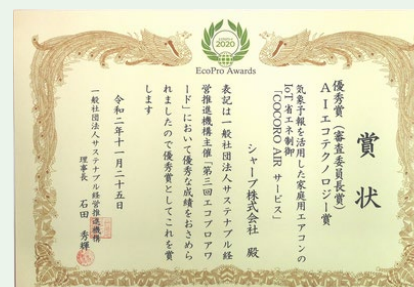 2020
EcoPro Awards
賞状
優秀賞(審査委員長賞)
AIエコテクノロジー賞
気象予報を活用した家庭用エアコンの
IoT省エネ制御
「COCORO AIR サービス」
シャープ株式会社 殿
表記は一般社団法人サステナブル経
営推進機構主催「第三回エコプロアワ
ード」において優秀な成績をおさめら
れましたので優秀賞としてこれを賞
します
令和二年十一月二十五日
一般社団法人サステナブル経営推進機構
理事長 石田 秀輝